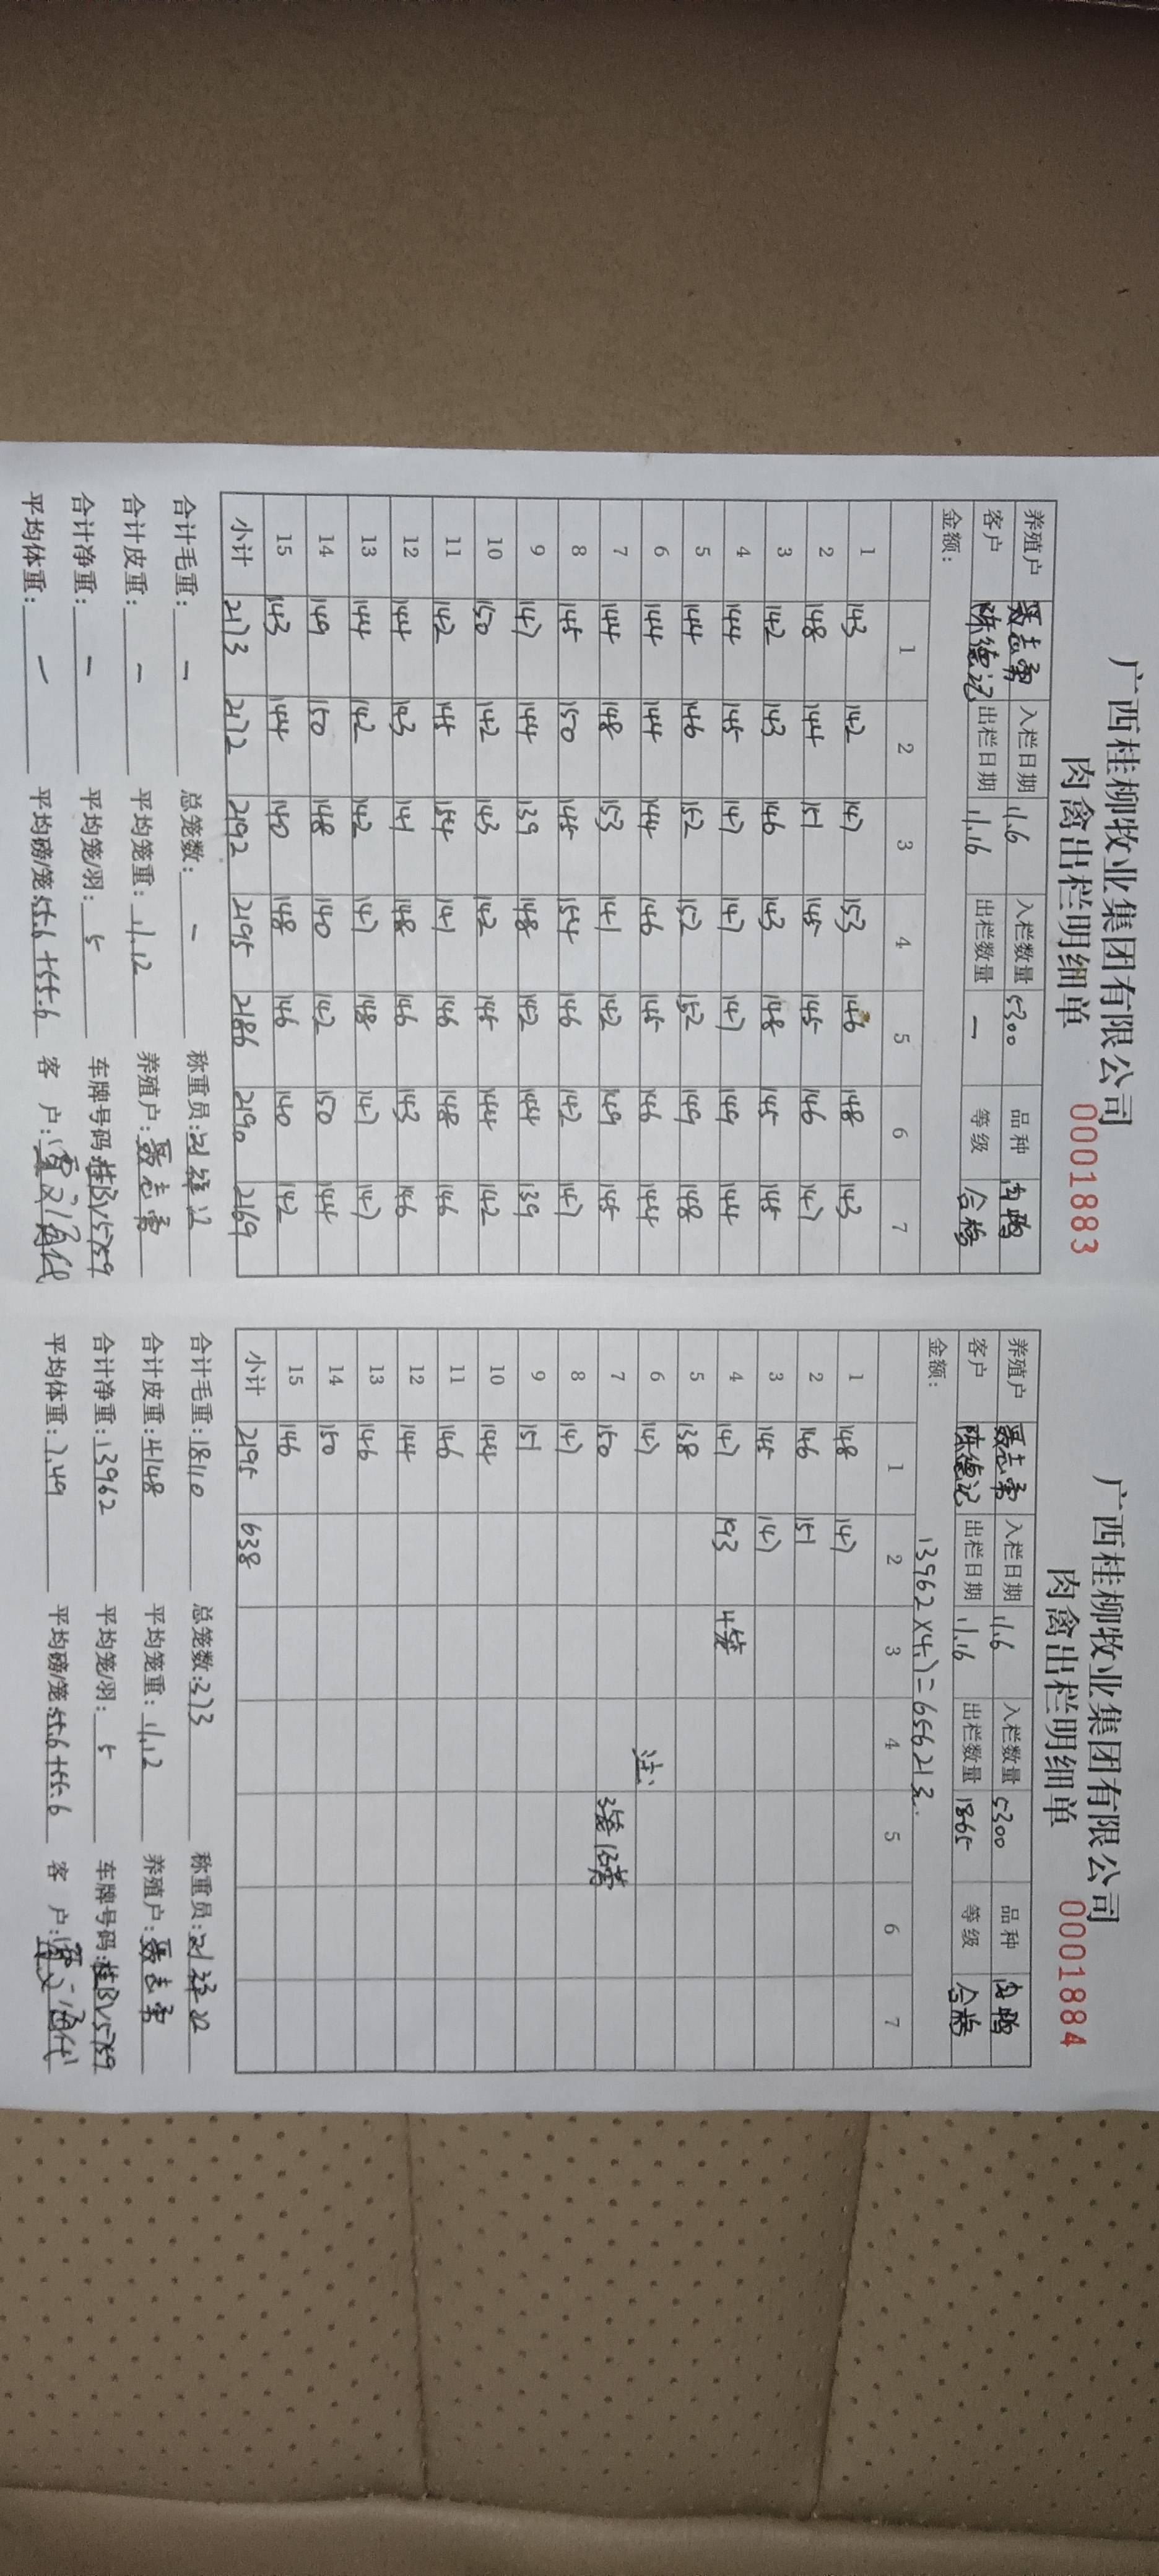 广西桂柳牧业集团有限公司
肉禽出栏明细单 0001883
养殖户 聂志勇 入栏日期 11.6 入栏数量 5300 品种 肉鸭
客户 陈德记 出栏日期 11.16 出栏数量 — 等级 合格
金额：
1 2 3 4 5 6 7
1 143 142 147 153 146 148 143
2 148 144 151 145 145 146 147
3 142 143 146 143 148 145 145
4 144 145 147 147 147 149 144
5 144 146 152 152 152 149 148
6 144 144 144 146 145 146 144
7 144 148 153 141 142 149 145
8 145 150 145 154 146 142 147
9 147 144 139 148 142 144 139
10 150 142 143 142 145 144 142
11 142 145 154 141 146 148 146
12 144 143 141 148 146 143 146
13 144 142 142 147 148 147 147
14 149 150 148 140 142 150 144
15 143 144 140 148 146 140 142
小计 2173 2172 2192 2195 2186 2190 2169
合计毛重：— 总笼数：— 称重员：
合计皮重：— 平均笼重：11.12 养殖户：聂志勇
合计净重：— 平均笼/羽：5 车牌号码：桂BV5759
平均体重：— 平均磅/笼：55.6+55.6 客 户：
广西桂柳牧业集团有限公司
肉禽出栏明细单 0001884
养殖户 聂志勇 入栏日期 11.6 入栏数量 5300 品种 肉鸭
客户 陈德记 出栏日期 11.16 出栏数量 1865 等级 合格
金额： 13962×4.7=65621元.
1 2 3 4 5 6 7
1 148 147
2 146 151
3 145 147
4 147 193 4笼
5 138
6 147 注:
7 150
8 147
9 151
10 144
11 146
12 144
13 146
14 150
15 146
小计 2195 638
合计毛重：18110 总笼数：373 称重员：
合计皮重：4148 平均笼重：11.12 养殖户：聂志勇
合计净重：13962 平均笼/羽：5 车牌号码：桂BV5759
平均体重：7.49 平均磅/笼：55.6+55.6 客 户：